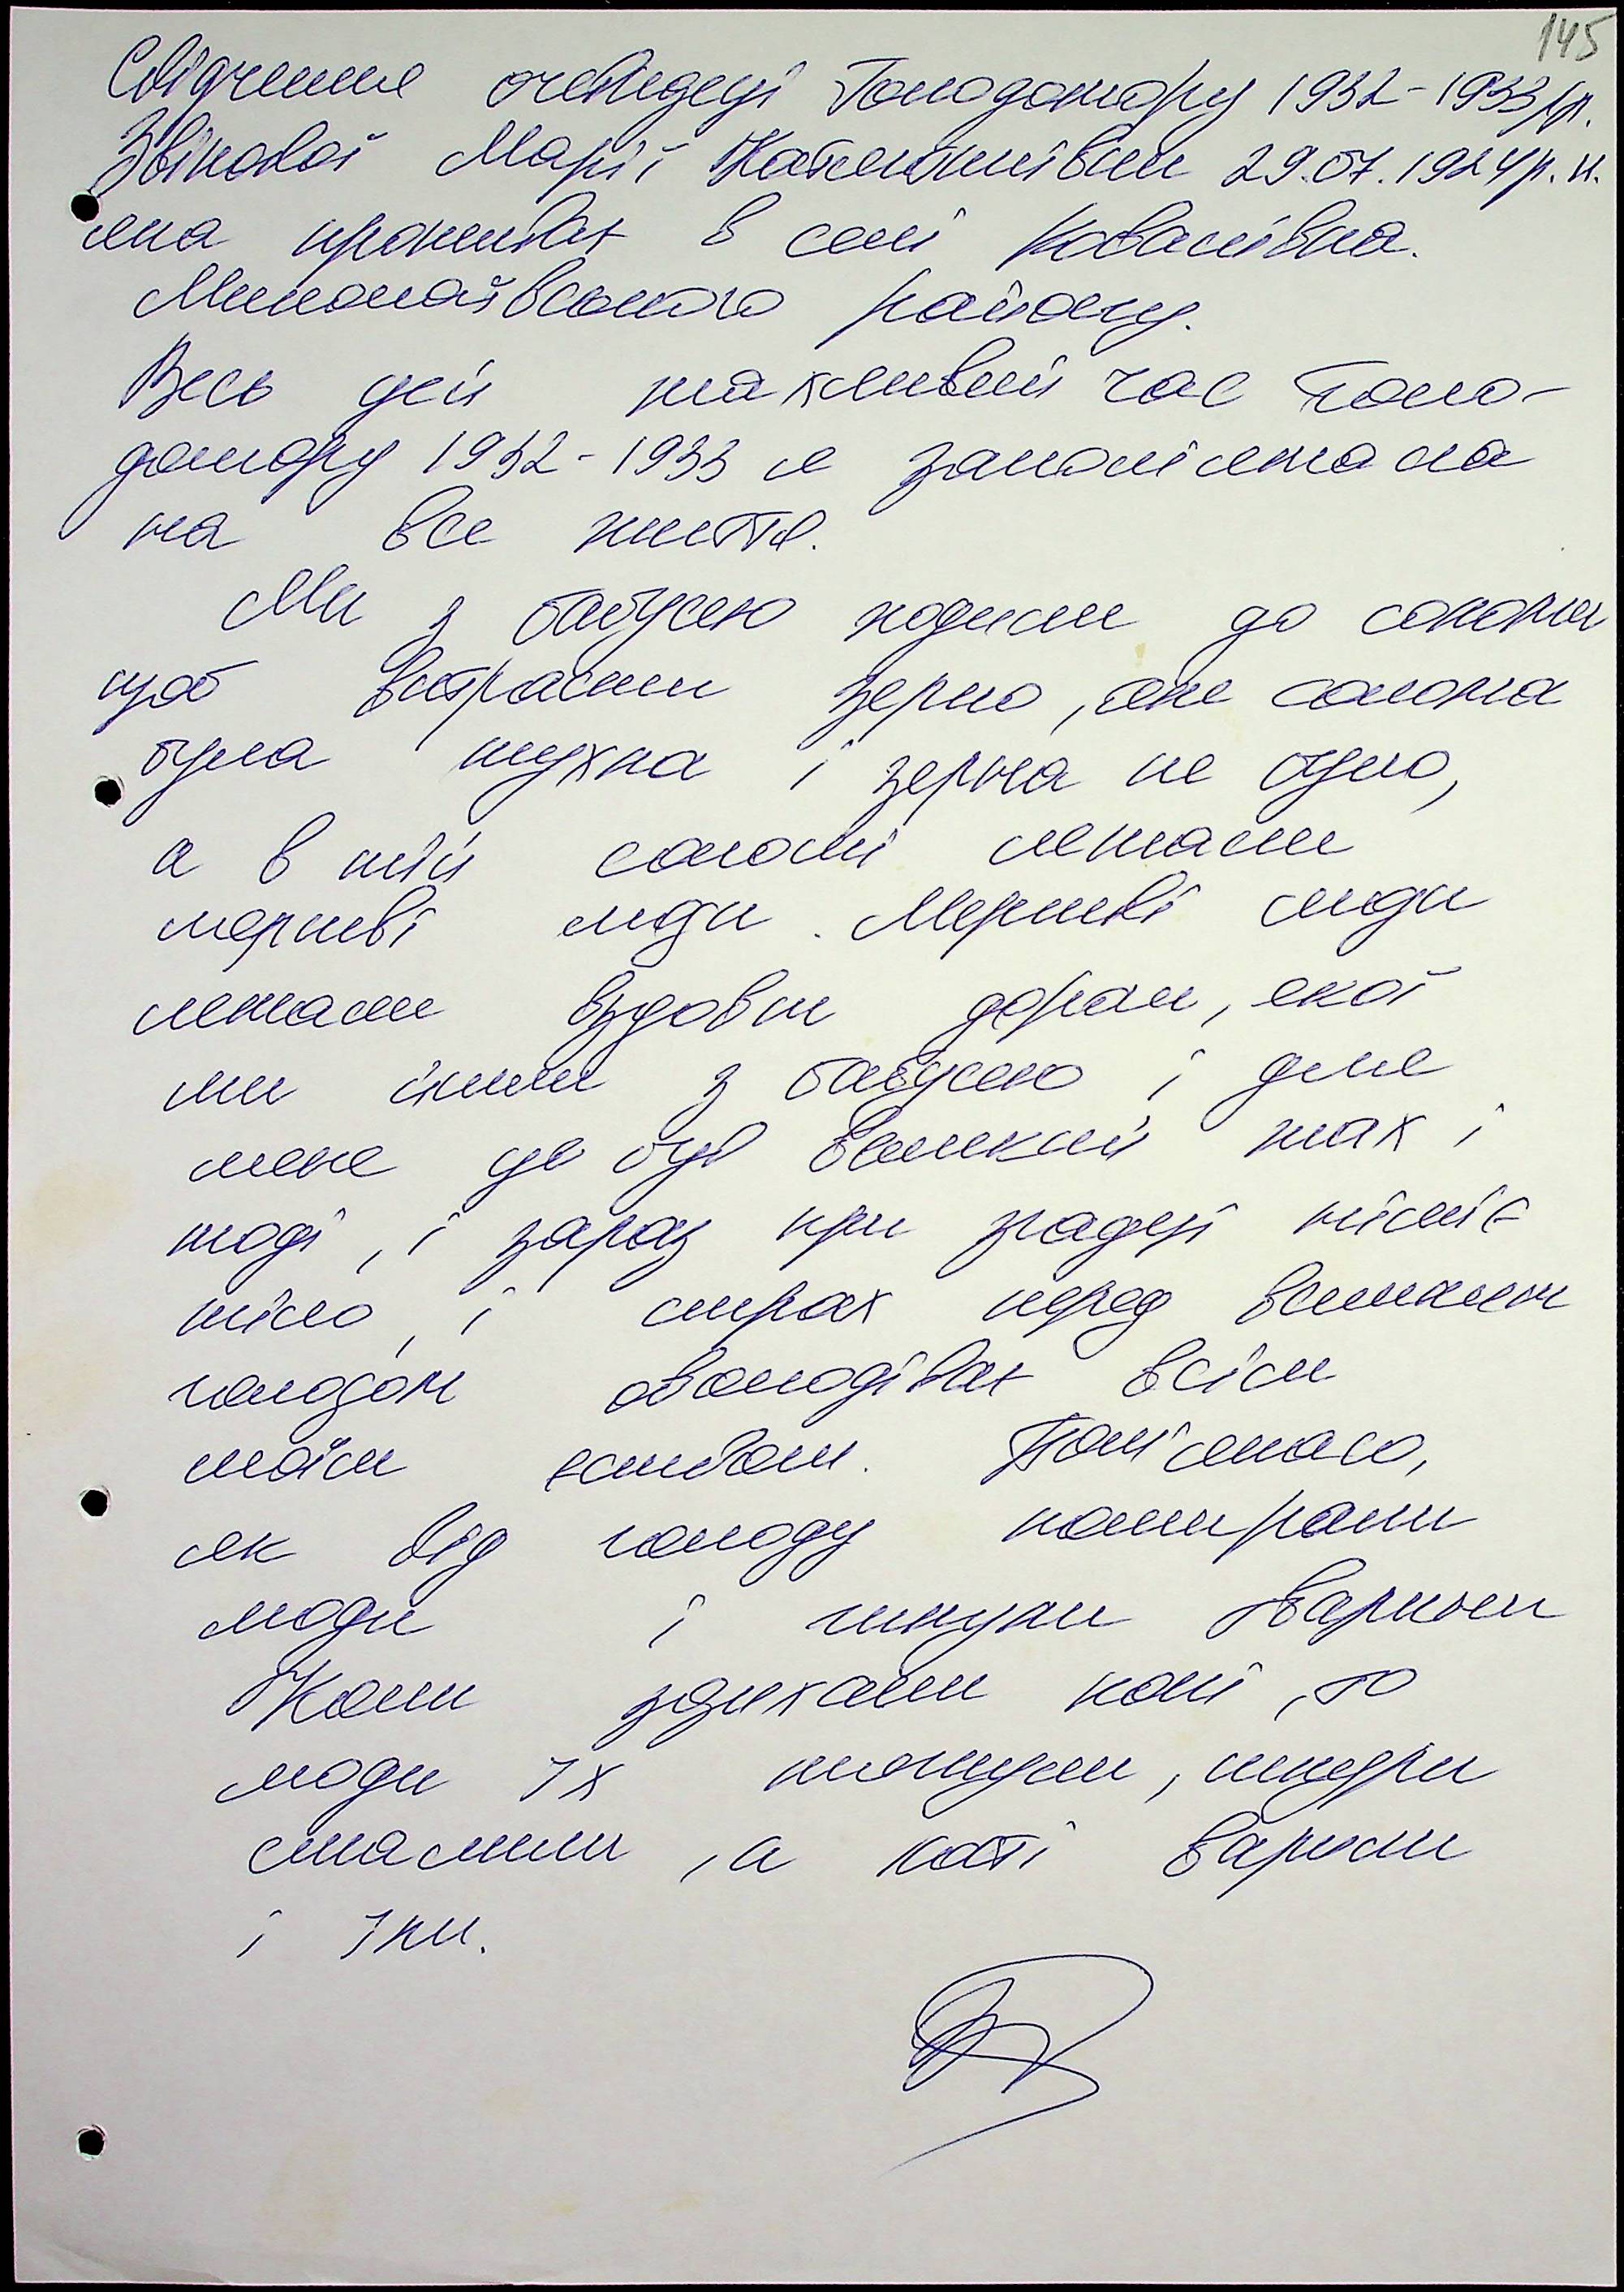 145
Свідчення очевидеці Голодомору 1932-1933рр.
Звінової Марії 29.07.1924р.н.
яка проживає в селі Ковалівка.
Миколаївського району.
Весь цей жахливий час голо-
домору 1932-1933 я запам'ятала
на все життя.
Ми з бабусею ходили до скирти
щоб витрасти зерно, але солома
була тухла і зерна не було,
а в тій соломі лежали
мертві люди. Мертві люди
лежали вздовж дороги, якої
ми йшли з бабусею і для
мене це був великий жах і
тоді, і зараз при згадці німіє
тіло, і страх перед великим
голодом оволодіває всім
моїм єством. Пам'ятаю,
як від голоду помирали
люди і гинули тварини
Коли здихали коні, то
люди їх шкуру
смалили, а кості варили
і їли.